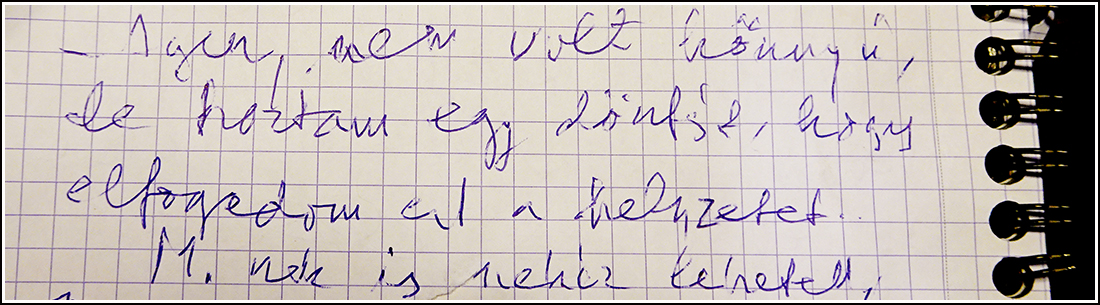 - Igen, nem volt könnyű,
de hoztam egy döntést, hogy
elfogadom ezt a helyzetet.
M. nek is nehéz lehetett,